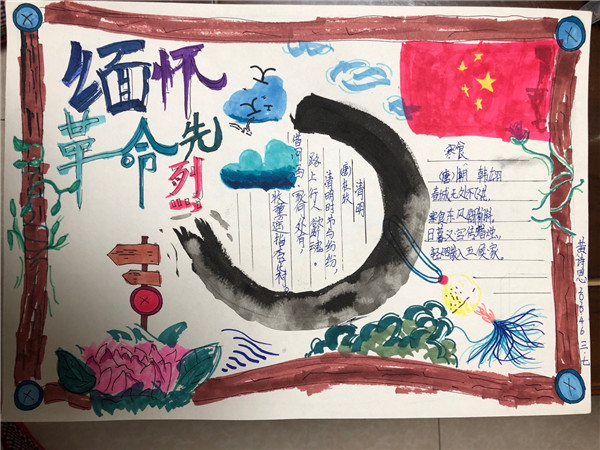 缅怀
革命先
烈
清明
唐杜牧
清明时节雨纷纷,
路上行人欲断魂。
借问酒家何处有,
牧童遥指杏花村
寒食
(唐)韩翃
春城无处不飞花,
寒食东风御柳斜,
日暮汉宫传蜡烛,
轻烟散入五侯家。
黄诗恩 三.七